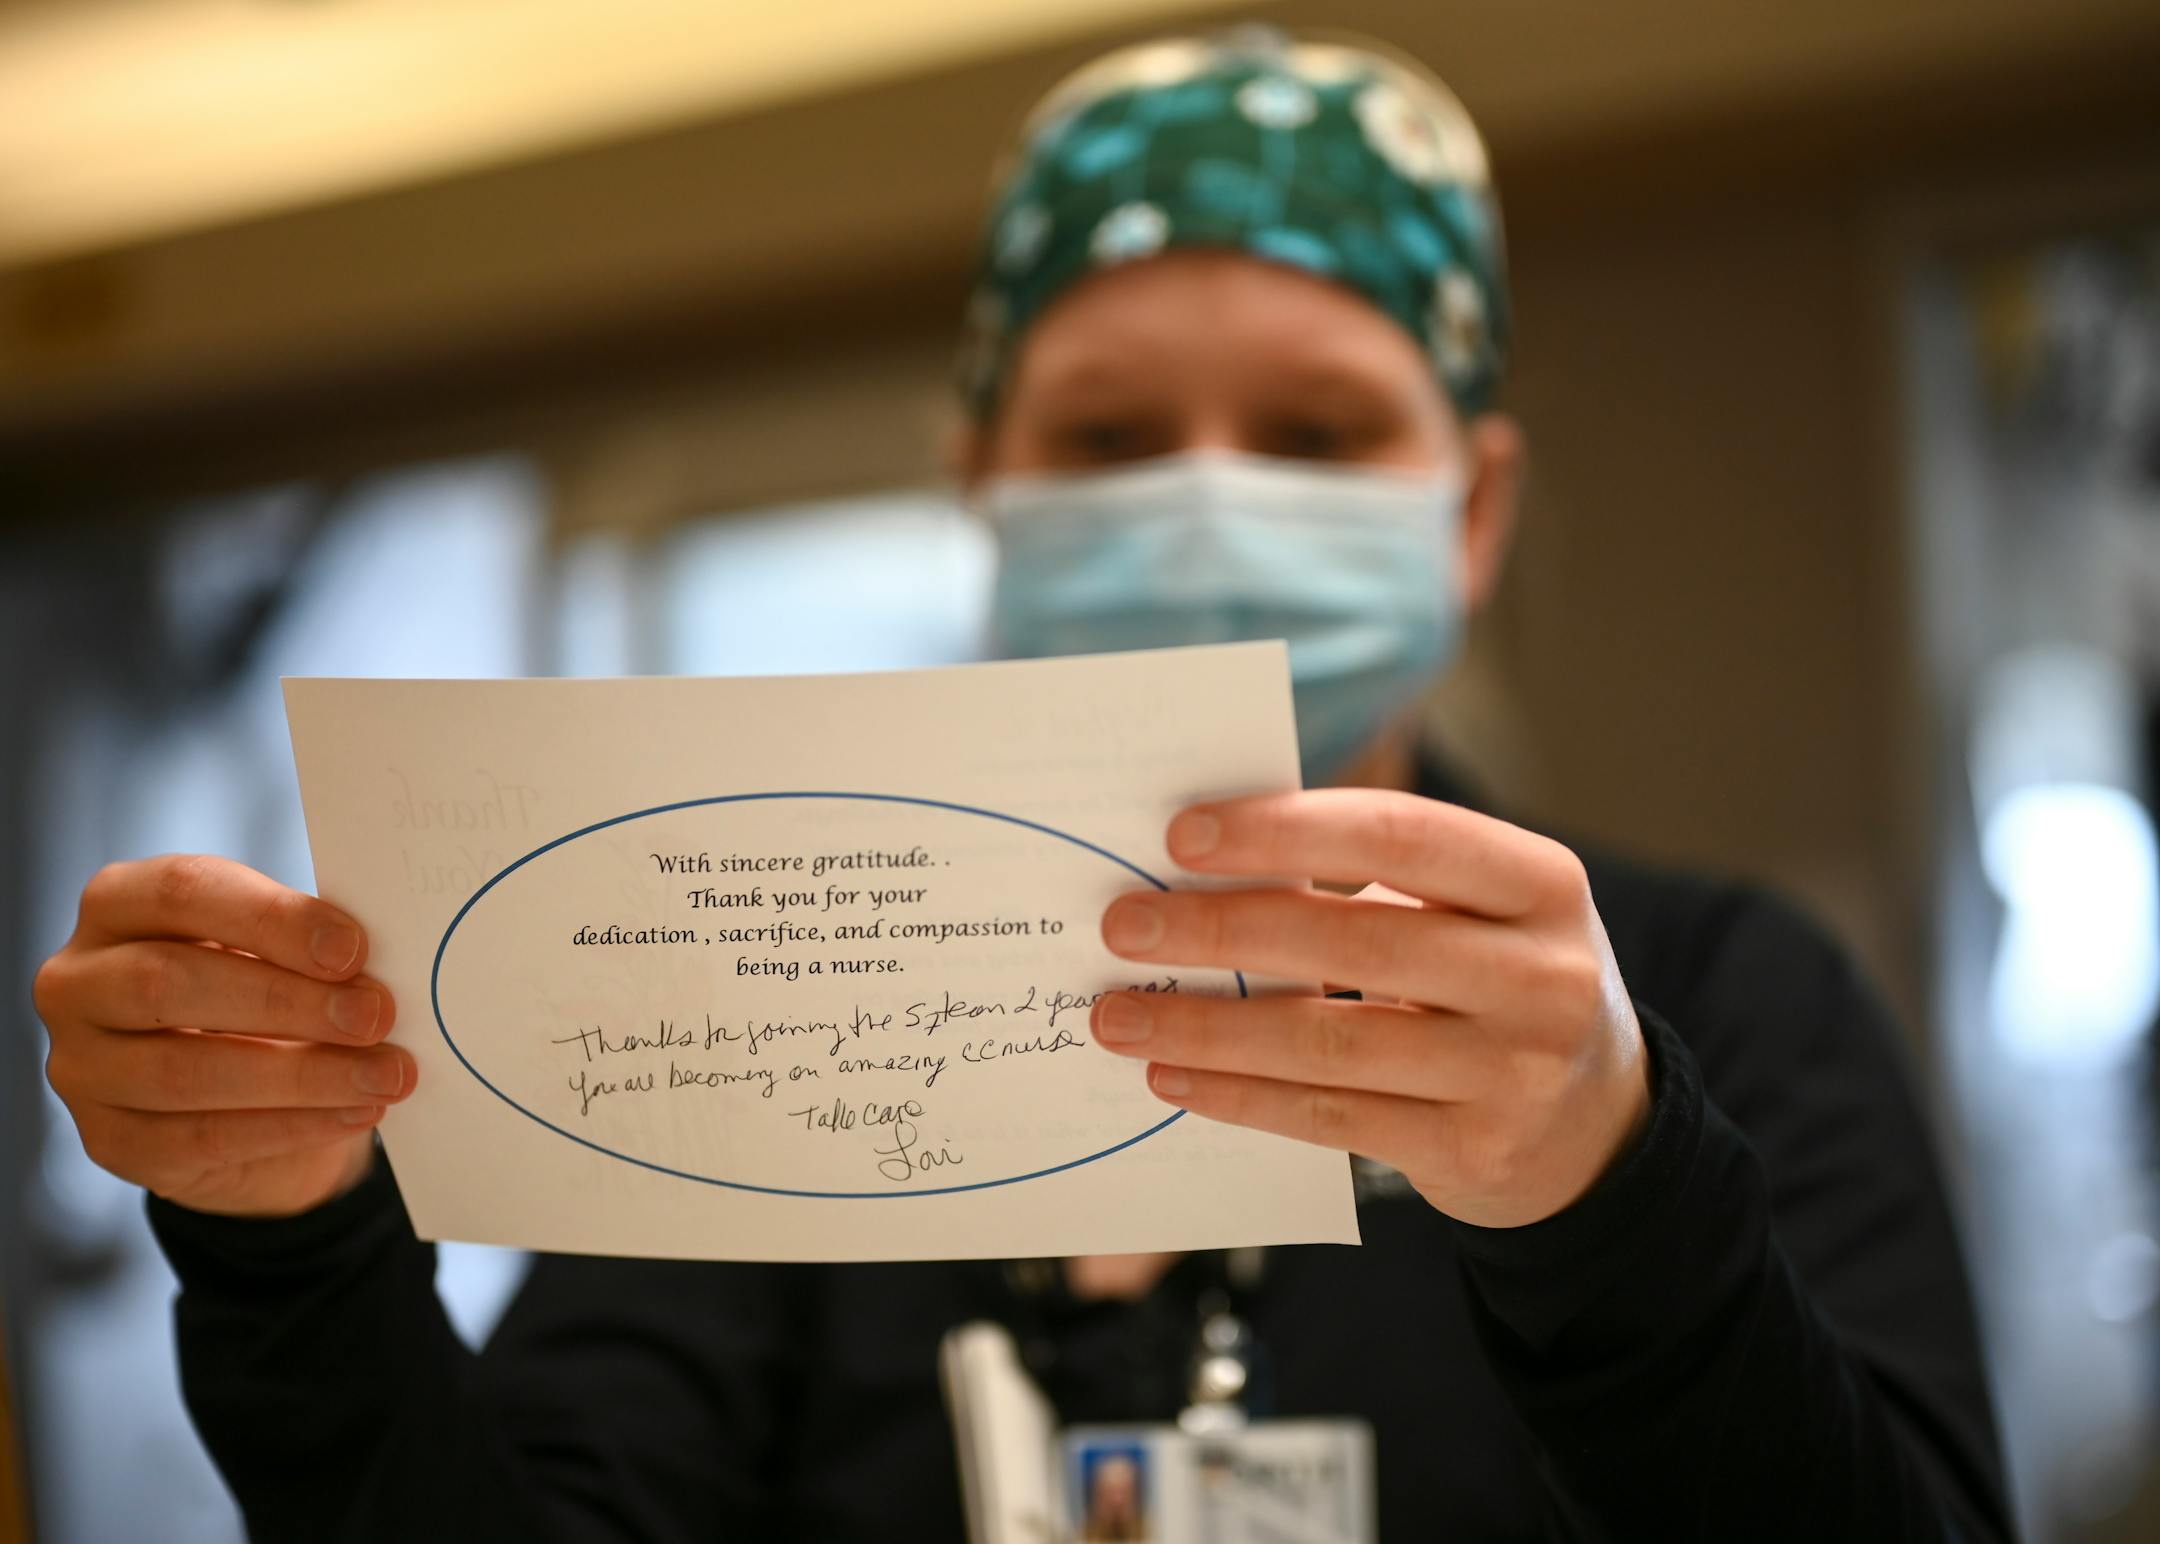 With sincere gratitude. .
Thank you for your
dedication , sacrifice, and compassion to
being a nurse.
Thanks for joining the 2 year
You are becoming an amazing CC nurse
Take care
Lori
Thank
You!